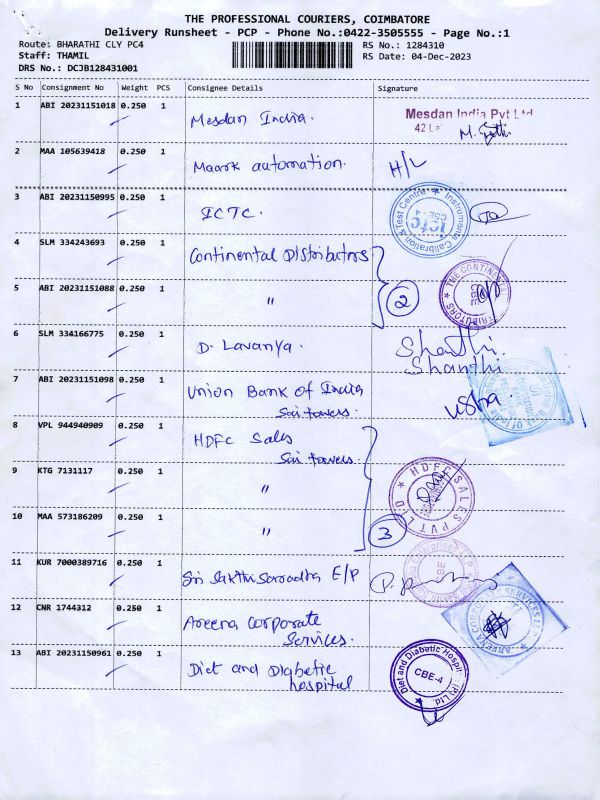 THE PROFESSIONAL COURIERS, COIMBATORE
Delivery Runsheet - PCP - Phone No.:0422-3505555 - Page No.:1
Route: BHARATHI CLY PC4
RS No.: 1284310
Staff: THAMIL
RS Date: 04-Dec-2023
DRS No.: DCJB128431001
S No Consignment No Weight PCS Consignee Details Signature
1 ABI 20231151018 0.250 1 Mesdan India.
Mesdan India Pvt Ltd
42
2 MAA 105639418 0.250 1 Maark automation. H/L
3 ABI 20231150995 0.250 1 ICTC.
Instruments Calibration & Test Centre ictc CBE-4
4 SLM 334243693 0.250 1 Continental Distributors
5 ABI 20231151088 0.250 1 "
2
THE CONTINENTAL DISTRIBUTORS CBE
6 SLM 334166775 0.250 1 D. Lavanya. Shanthi.
Shanthi
7 ABI 20231151098 0.250 1 Union Bank of India
Sai towers. Usha.
8 VPL 944940909 0.250 1 HDFC Sales
Sai towers.
9 KTG 7131117 0.250 1 "
HDFC SALES PVT LTD
10 MAA 573186209 0.250 1 "
3
11 KUR 7000389716 0.250 1 Sri Sakthi Sarradha E/P
12 CNR 1744312 0.250 1 Areena Corporate
Services.
13 ABI 20231150961 0.250 1 Diet and Diabetic
hospital
Diet and Diabetic Hospital (P) Ltd. CBE-4